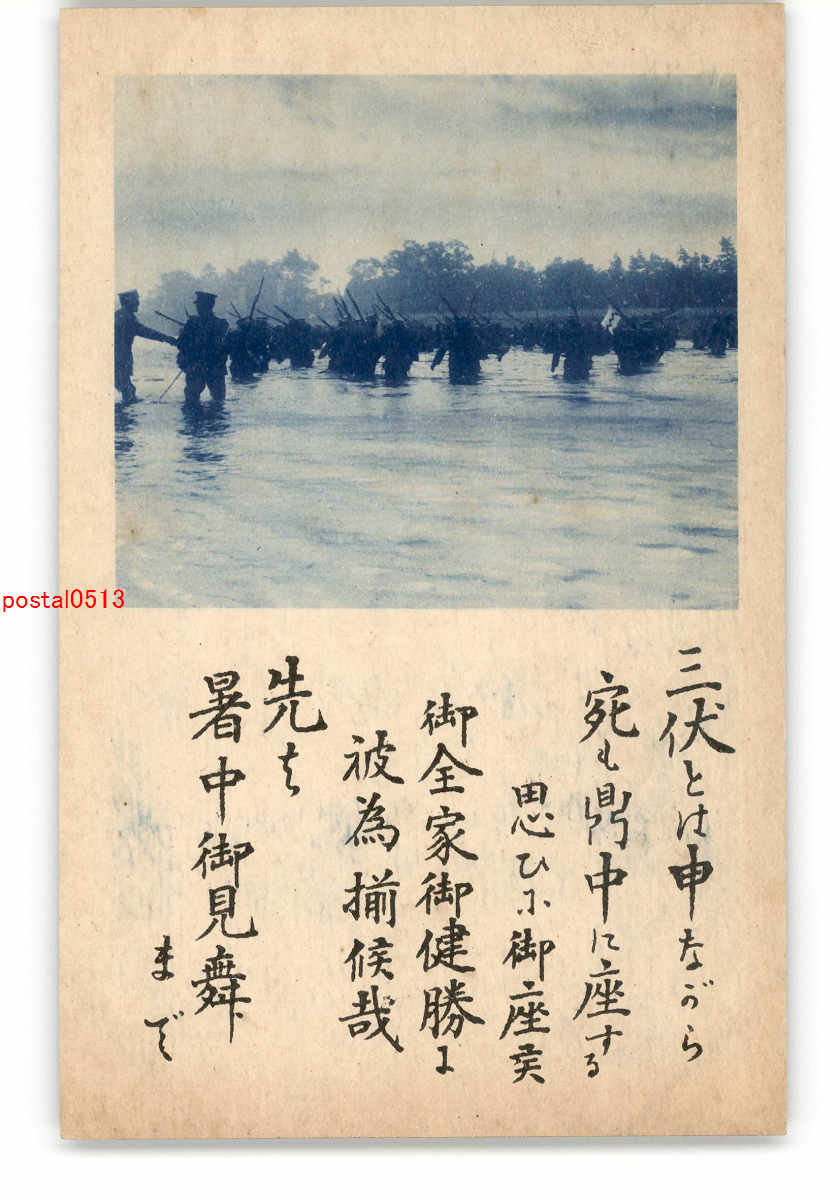 三伏とは申ながら
宛も鼎中に座する
思ひに御座候
御全家御健勝に
被為揃候哉
先は
暑中御見舞
まで
postal0513